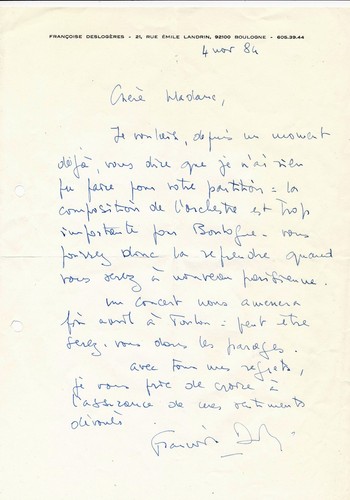 FRANÇOISE DESLOGÈRES • 21, RUE ÉMILE LANDRIN, 92100 BOULOGNE • 605.39.44
4 nov 84
Chère Madame,
Je voulais, depuis un moment
déjà, vous dire que je n'ai rien
pu faire pour votre partition = la
composition de l'orchestre est trop
importante pour Boulogne. vous
pouvez donc la reprendre quand
vous serez à nouveau parisienne.
un concert nous amenera
fin avril à Toulon = peut être
serez-vous dans les parages.
avec tous mes regrets,
je vous prie de croire à
l'assurance de mes sentiments
dévoués